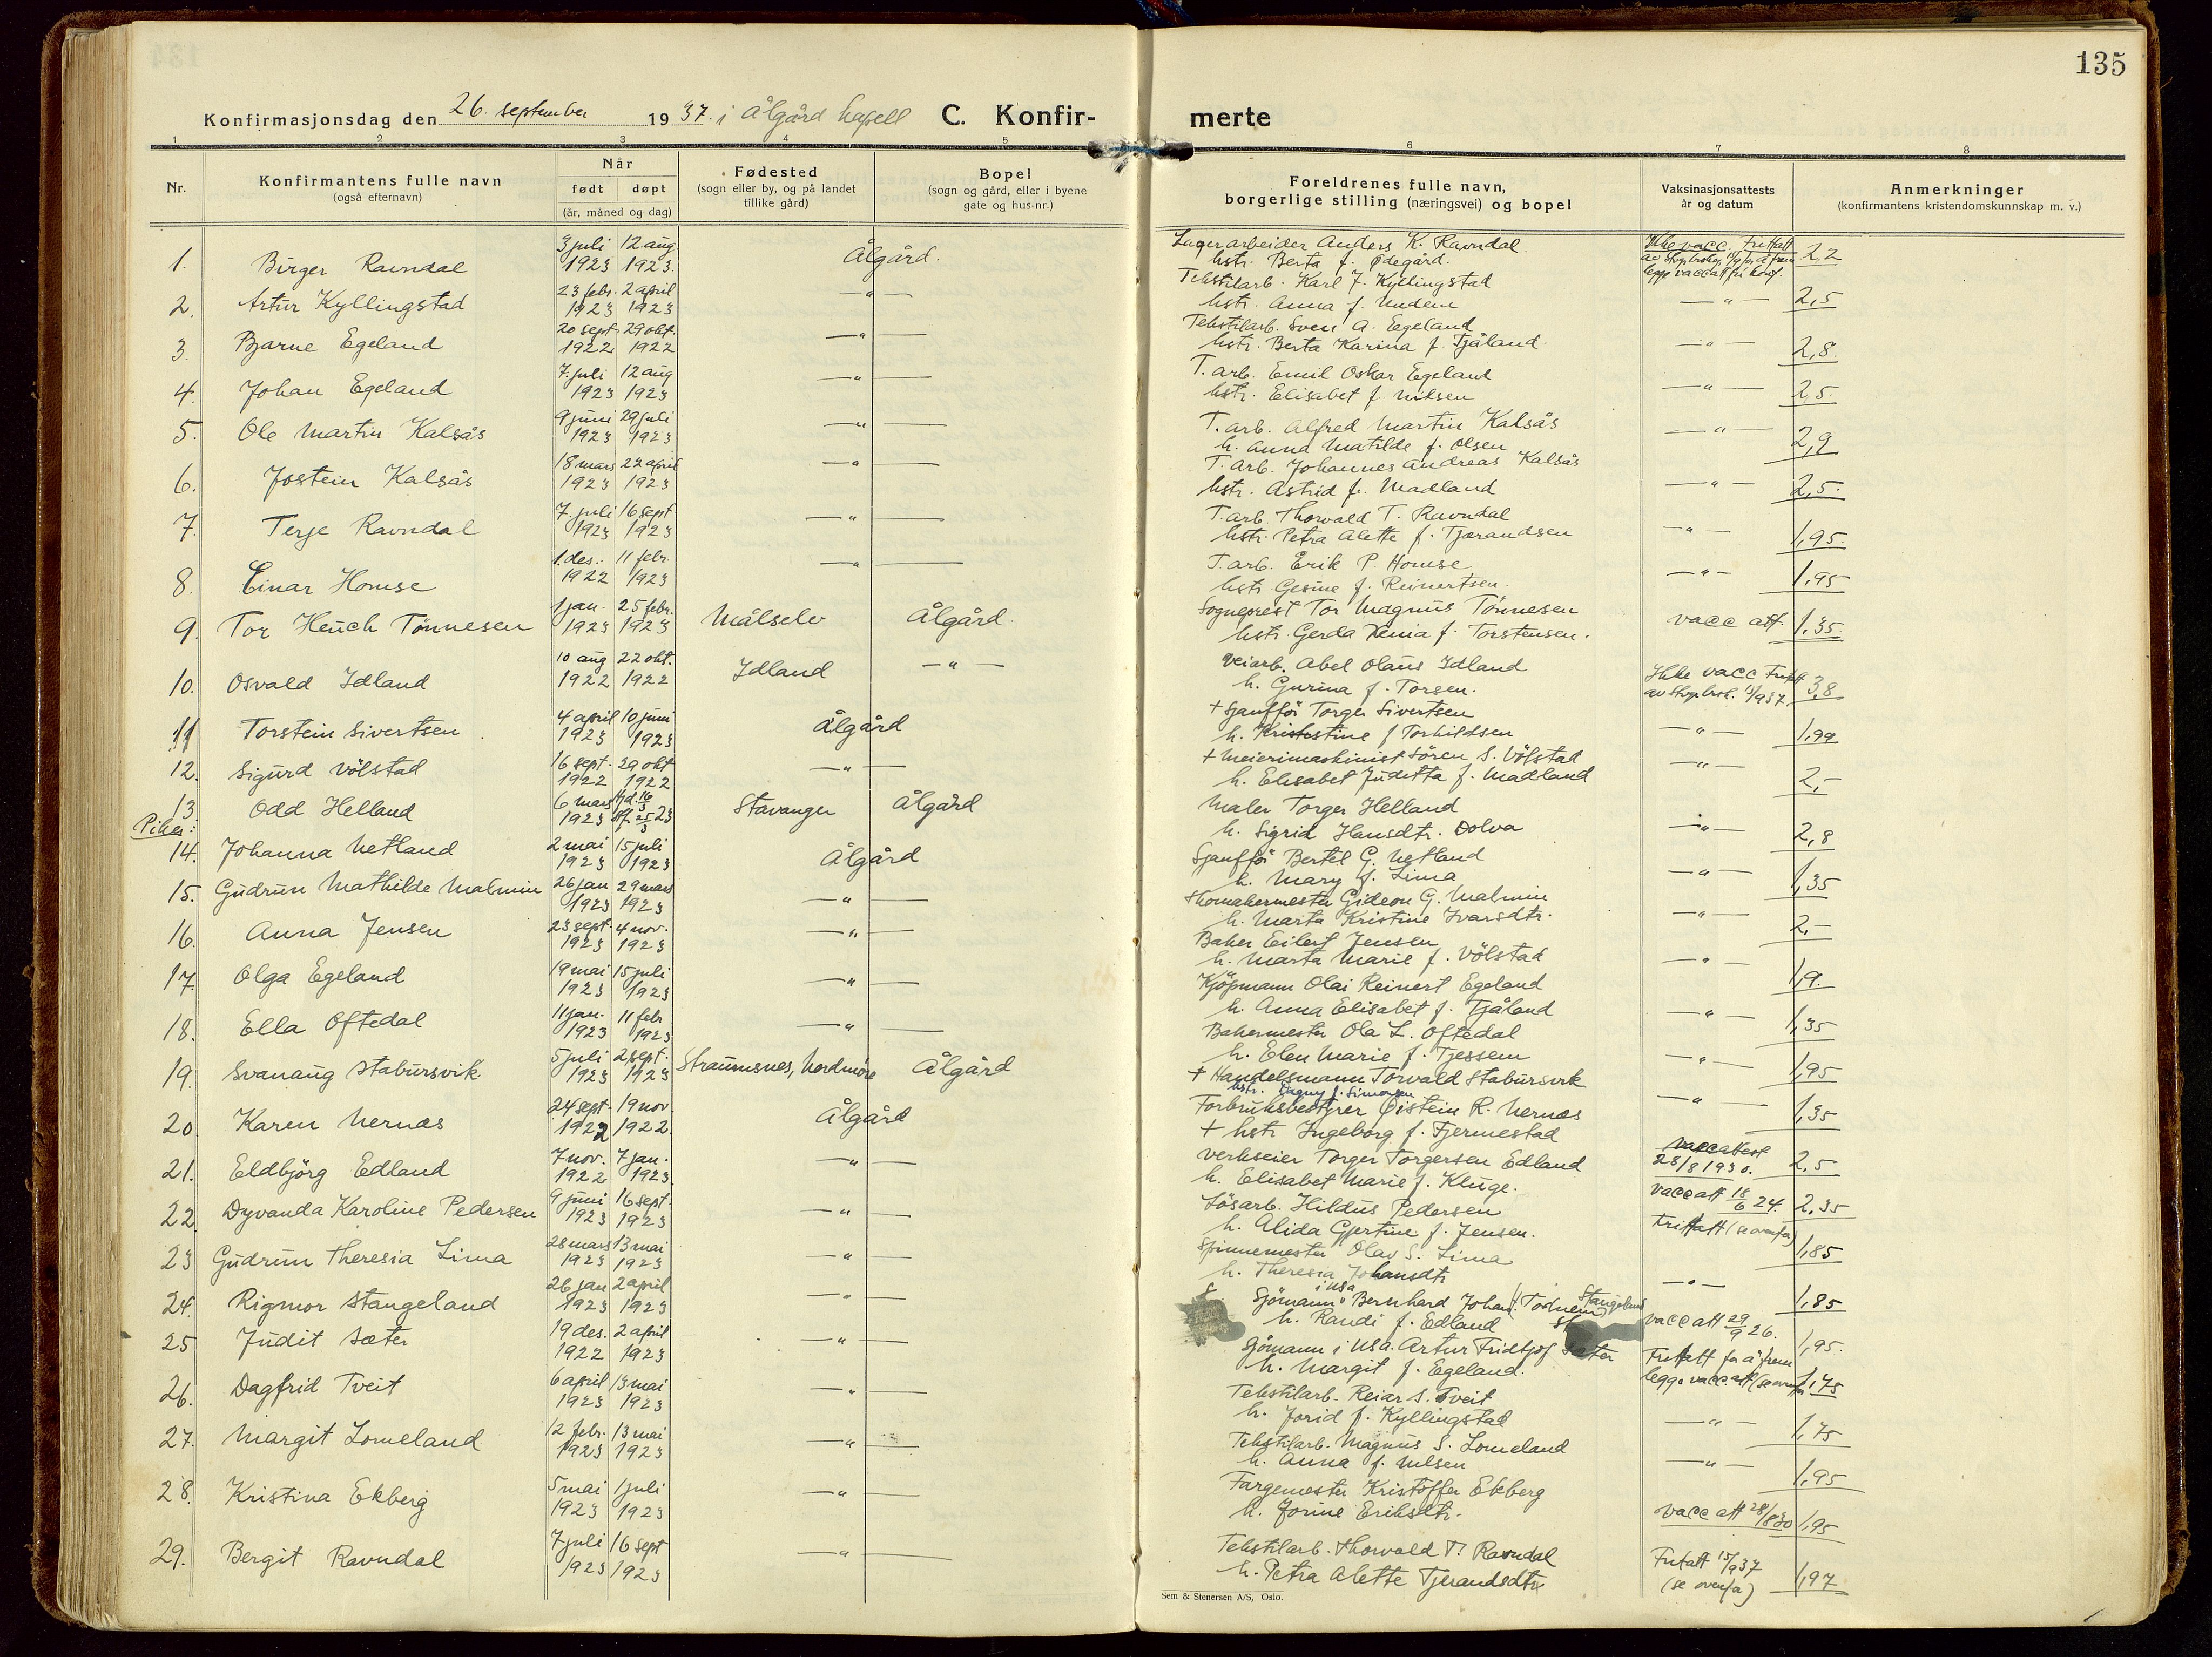 135
Konfirmasjonsdag den 26. september 1937 i Ålgård kapell C. Konfirmerte
1 2 3 4 5 6 7 8
Nr. Konfirmantens fulle navn (også efternavn) Når født døpt (år, måned og dag) Fødested (sogn eller by, og på landet tillike gård) Bopel (sogn og gård, eller i byene gate og hus-nr.) Foreldrenes fulle navn, borgerlige stilling (næringsvei) og bopel Vaksinasjonsattests år og datum Anmerkninger (konfirmantens kristendomskunnskap m. v.)
1. Birger Ravndal 3 juli 1923 12. aug. 1923. Ålgård. Lagerarbeider Anders K. Ravndal hstr. Berta f. Ødegård. Ikke vacc. fritatt 2,2
2. Artur Kyllingstad 23 febr. 1923 2 april 1923 —"— Tekstilarb. Karl J. Kyllingstad hstr. Anna f. Undem —"— 2,5
3. Bjarne Egeland 20 sept. 1922 29 okt. 1922 —"— Tekstilarb. Sven A. Egeland hstr. Berta Karina f. Tjåland. —"— 2,8.
4. Johan Egeland 7. juli 1923 12 aug 1923 —"— T. arb. Emil Oskar Egeland hstr. Elisabet f. Nilsen —"— 2,5.
5. Ole Martin Kalsås 9 juni 1923 29 juli 1923 —"— T. arb. Alfred Martin Kalsås h. Anna Matilde f. Olsen —"— 2,9
6. Jostein Kalsås 18 mars 1923 22 april 1923 —"— T. arb. Johannes Andreas Kalsås hstr. Astrid f. Madland —"— 2,5.
7. Terje Ravndal 7. juli 1923 16 sept. 1923 —"— T. arb. Thorvald T. Ravndal hstr. Petra Alette f. Tjærandsen —"— 1,95.
8. Einar Homse 1. des. 1922 11 febr. 1923 —"— T. arb. Erik P. Homse hstr. Gesine f. Reinertsen. —"— 1,95
9. Tor Heuch Tønnesen 1 jan. 1923 25 febr. 1923 Målselv Ålgård. Sogneprest Tor Magnus Tønnesen hstr. Gerda Xenia f. Torstensen. vacc att. 1,35
10. Osvald Idland 10 aug 1922 22 okt. 1922 Idland —"— Veiarb. Abel Olaus Idland h. Gurina f. Torsen. Ikke vacc fritatt av 15/9 37. 3,8
11 Torstein Sivertsen 4 april 1923 10 juni 1923 Ålgård + Sjauffør Torger Sivertsen h. Kristine f Torkildsen —"— 1,99
12. Sigurd Völstad 16 sept. 1922 29 okt 1922 —"— + Meierimaskinist Sören S. Völstad h. Elisabet Juditta f. Madland —"— 2,-
13. Odd Helland 6 mars 1923 Hjd. 16/3 st.f. 25/3 23 Stavanger Ålgård Maler Torger Helland h. Sigrid Hansdtr. Dolva —"— 2,8
Piker:
14. Johanna Netland 2 mai 1923 15 juli 1923 Ålgård Sjauffør Bertel G. Netland h. Mary f. Lima —"— 1,35
15. Gudrun Mathilde Malmin 26 jan 1923 29 mars 1923 —"— Skomakermester Gideon G. Malmin h. Marta Kristine Ivarsdtr. —"— 2,-
16. Anna Jensen 23 sept. 1923 4 nov. 1923 —"— Baker Eilert Jensen h. Marta Marie f. Völstad —"— 1,9.
17. Olga Egeland 19 mai 1923 15 juli 1923 —"— Kjöpmann Olai Reinert Egeland h. Anna Elisabet f. Tjåland —"— 1,35
18. Ella Oftedal 11 jan. 1923 11 febr 1923 —"— Bakermester Ola L. Oftedal h. Elen Marie f. Tjessem —"— 1,95
19. Svanaug Stabursvik. 5 juli 1923 2 sept. 1923 Straumsnes, Nordmøre Ålgård + Handelsmann Torvald Stabursvik hstr. Dagny f. Simonsen —"— 1,35
20. Karen Nernæs 24 sept. 1922 19 nov 1922. Ålgård Forbruksbestyrer Øistein R. Nernæs + hstr Ingeborg f. Fjermestad vaccattest 28/8 1930. 2,5
21. Eldbjörg Edland 7 nov. 1922 7 jan. 1923. —"— Verkseier Torger Torgersen Edland h. Elisabet Marie f. Kluge. vacc att 18/6 24. 2,35
22. Dyvanda Karoline Pedersen 9 juni 1923 16 sept. 1923 —"— Løsarb. Hildus Pedersen h. Alida Gjertine f. Jensen. Fritatt (se ovenfor) 1,85
23 Gudrun Theresia Lima 28 mars 1923 13 mai 1923 —"— Spinnemester Olav S. Lima h. Theresia Johansdtr —"— 1,85
24. Rigmor Stangeland 26 jan 1923 2 april 1923 —"— Sjömann i USA Bernhard Johan Todnem Stangeland h. Randi f. Edland vacc att 29/9 26. 1,95.
25 Judit Sæter 19 des. 1922 2 april 1923 —"— Sjömann i USA. Artur Fridtjof Sæter h. Margit f. Egeland. Fritatt for å frem legge vacc. att (se ovenfor) 1,75
26. Dagfrid Tveit 6 april 1923 13 mai 1923 —"— Tekstilarb. Reiar S. Tveit h. Jorid f. Kyllingstad —"— 1,75
27. Margit Lomeland 12 febr. 1923 13 mai 1923 —"— Tekstilarb. Magnus S. Lomeland h. Anna f. Nilsen —"— 1,95
28. Kristina Ekberg 5 mai 1923 1 juli 1923 —"— Fargemester Kristoffer Ekberg h. Jorine Eriksdtr. vacc att 28/8 30 1,95
29. Bergit Ravndal 7 juli 1923 16 sept 1923 —"— Tekstilarb. Thorvald T. Ravndal h. Petra Alette Tjerandsdtr. Fritatt 15/9 37 (se ovenfor) 1,97
Sem & Stenersen A/S, Oslo.